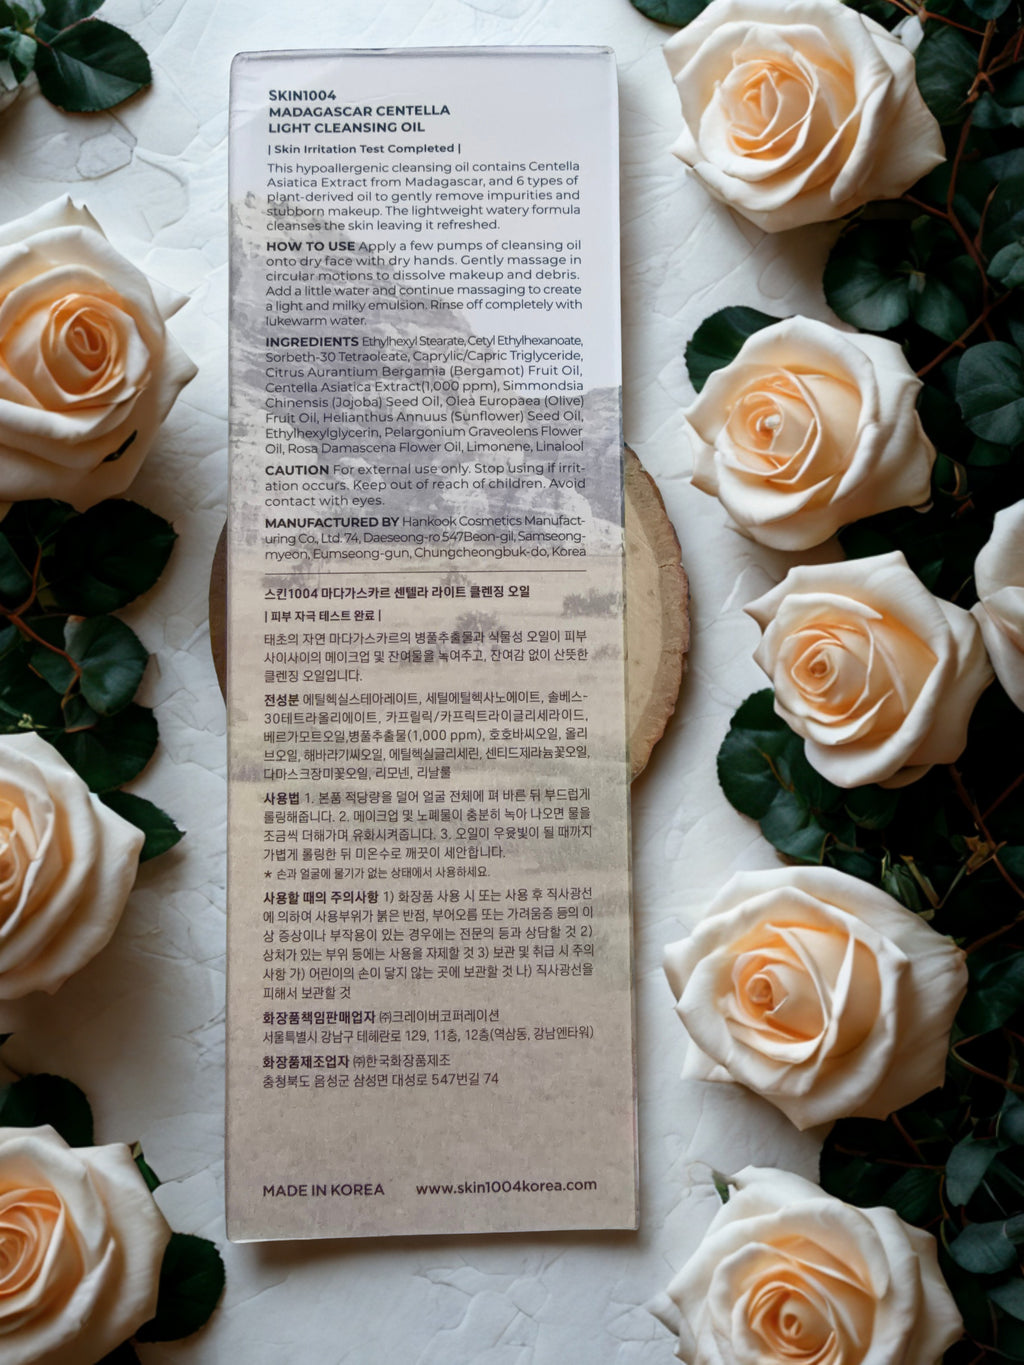 SKIN1004
MADAGASCAR CENTELLA
LIGHT CLEANSING OIL
| Skin Irritation Test Completed |
This hypoallergenic cleansing oil contains Centella
Asiatica Extract from Madagascar, and 6 types of
plant-derived oil to gently remove impurities and
stubborn makeup. The lightweight watery formula
cleanses the skin leaving it refreshed.
HOW TO USE Apply a few pumps of cleansing oil
onto dry face with dry hands. Gently massage in
circular motions to dissolve makeup and debris.
Add a little water and continue massaging to create
a light and milky emulsion. Rinse off completely with
lukewarm water.
INGREDIENTS Ethylhexyl Stearate, Cetyl Ethylhexanoate,
Sorbeth-30 Tetraoleate, Caprylic/Capric Triglyceride,
Citrus Aurantium Bergamia (Bergamot) Fruit Oil,
Centella Asiatica Extract(1,000 ppm), Simmondsia
Chinensis (Jojoba) Seed Oil, Olea Europaea (Olive)
Fruit Oil, Helianthus Annuus (Sunflower) Seed Oil,
Ethylhexylglycerin, Pelargonium Graveolens Flower
Oil, Rosa Damascena Flower Oil, Limonene, Linalool
CAUTION For external use only. Stop using if irrit-
ation occurs. Keep out of reach of children. Avoid
contact with eyes.
MANUFACTURED BY Hankook Cosmetics Manufact-
uring Co., Ltd. 74, Daeseong-ro 547Beon-gil, Samseong-
myeon, Eumseong-gun, Chungcheongbuk-do, Korea
스킨1004 마다가스카르 센텔라 라이트 클렌징 오일
| 피부 자극 테스트 완료 |
태초의 자연 마다가스카르의 병풀추출물과 식물성 오일이 피부
사이사이의 메이크업 및 잔여물을 녹여주고, 잔여감 없이 산뜻한
클렌징 오일입니다.
전성분 에틸헥실스테아레이트, 세틸에틸헥사노에이트, 솔베스-
30테트라올리에이트, 카프릴릭/카프릭트라이글리세라이드,
베르가모트오일,병풀추출물(1,000 ppm), 호호바씨오일, 올리
브오일, 해바라기씨오일, 에틸헥실글리세린, 센티드제라늄꽃오일,
다마스크장미꽃오일, 리모넨, 리날룰
사용법 1. 본품 적당량을 덜어 얼굴 전체에 펴 바른 뒤 부드럽게
롤링해줍니다. 2. 메이크업 및 노폐물이 충분히 녹아 나오면 물을
조금씩 더해가며 유화시켜줍니다. 3. 오일이 우윳빛이 될 때까지
가볍게 롤링한 뒤 미온수로 깨끗이 세안합니다.
* 손과 얼굴에 물기가 없는 상태에서 사용하세요.
사용할 때의 주의사항 1) 화장품 사용 시 또는 사용 후 직사광선
에 의하여 사용부위가 붉은 반점, 부어오름 또는 가려움증 등의 이
상 증상이나 부작용이 있는 경우에는 전문의 등과 상담할 것 2)
상처가 있는 부위 등에는 사용을 자제할 것 3) 보관 및 취급 시 주의
사항 가) 어린이의 손이 닿지 않는 곳에 보관할 것 나) 직사광선을
피해서 보관할 것
화장품책임판매업자 ㈜크레이버코퍼레이션
서울특별시 강남구 테헤란로 129, 11층, 12층(역삼동, 강남엔타워)
화장품제조업자 ㈜한국화장품제조
충청북도 음성군 삼성면 대성로 547번길 74
MADE IN KOREA www.skin1004korea.com